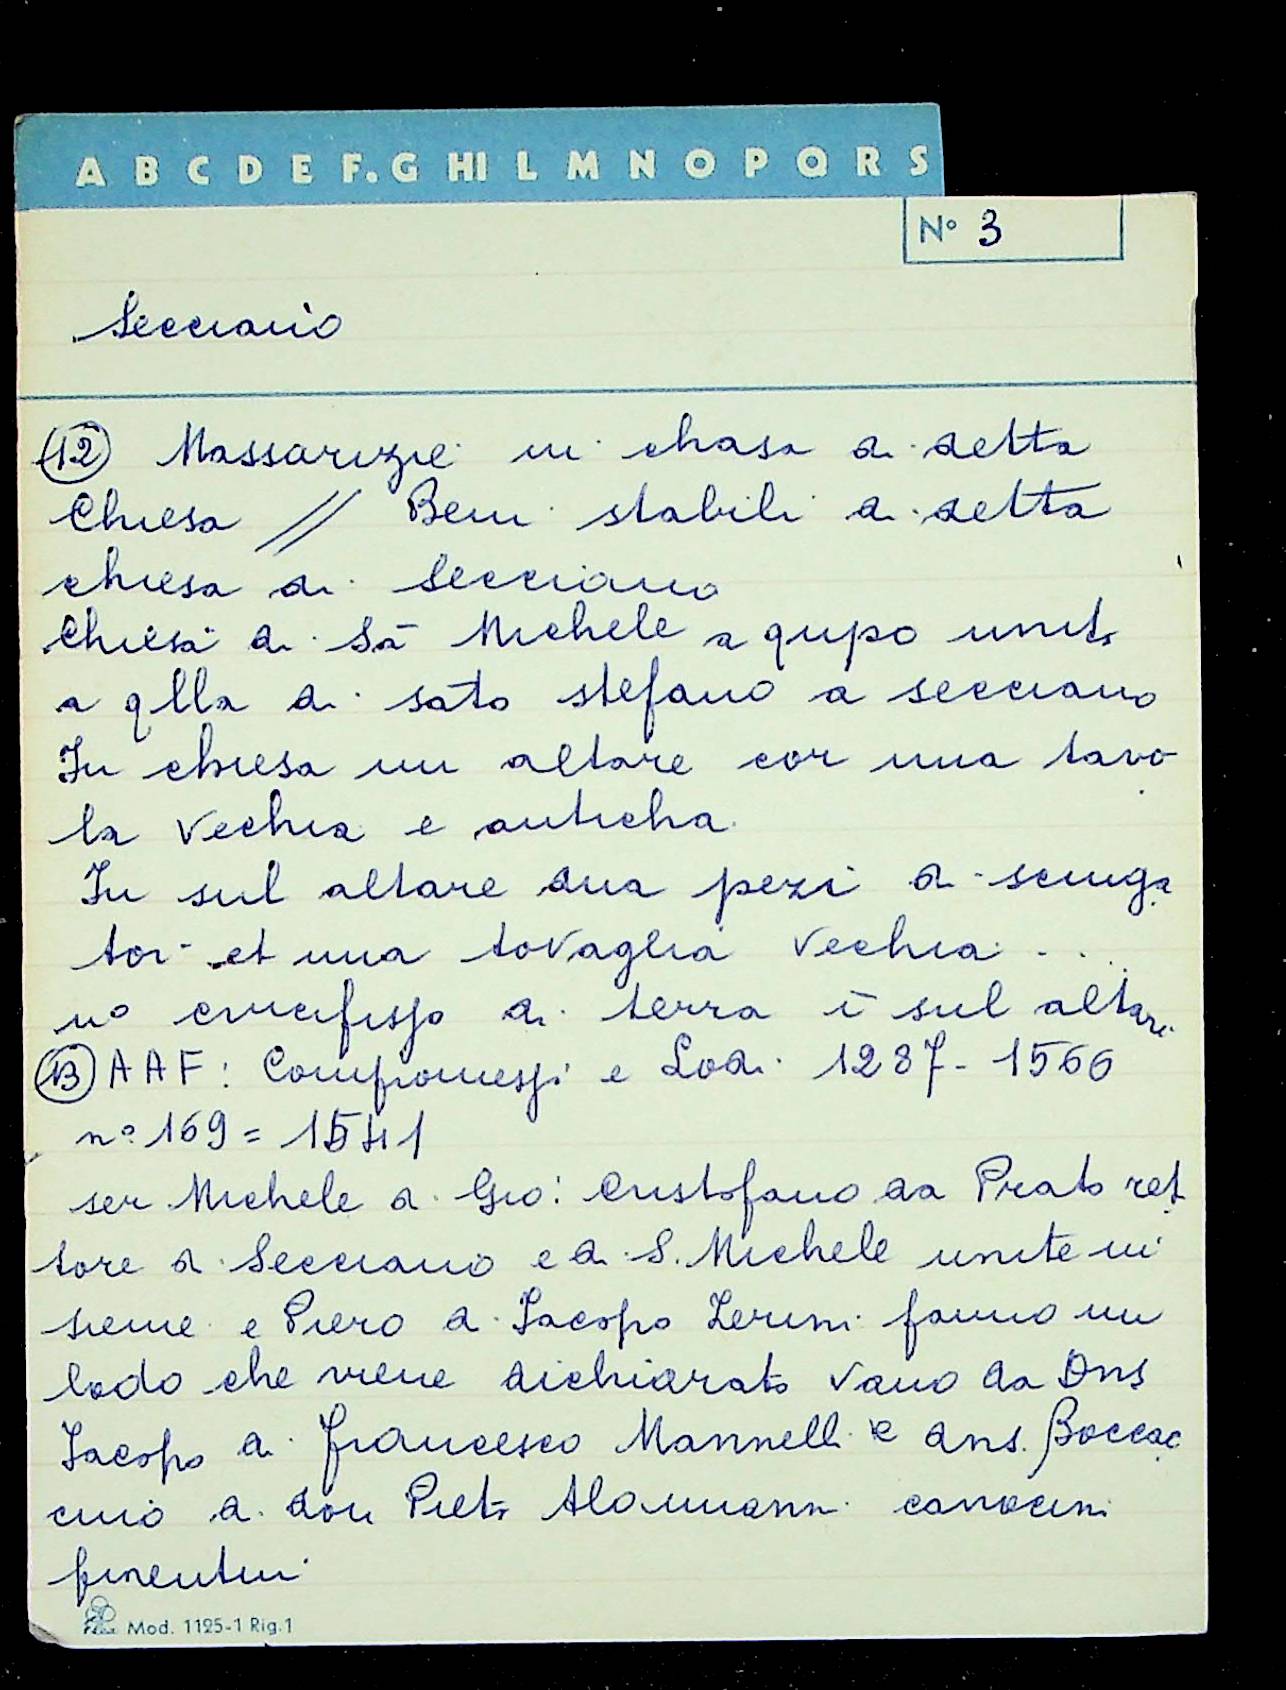 A B C D E F. G HI L M N O P Q R S
N° 3
Secciano
(12) Massarizie in chasa di detta
Chiesa // Beni stabili di detta
chiesa di Secciano
Chiesa di Sā Michele a qupo unita
a qlla di sāto stefano a secciano
In chiesa un altare cor una tavo
la vechia e anticha.
In sul altare dua pezi di sciuga
toi et una tovaglia vechia ....
uo crucifisso di terra ī sul altare
(13) AAF: Compromessi e Lodi 1287-1566
n° 169 = 1541
ser Michele di Gio: Cristofano da Prato ret
tore di Secciano e di S. Michele unite in
sieme e Piero di Iacopo Zerini fanno un
lodo che viene dichiarato vano da Dns
Iacopo di Francesco Mannelli e dns. Boccac
cino di don Pieto Alamanni canocini
finentini
Mod. 1125-1 Rig.1